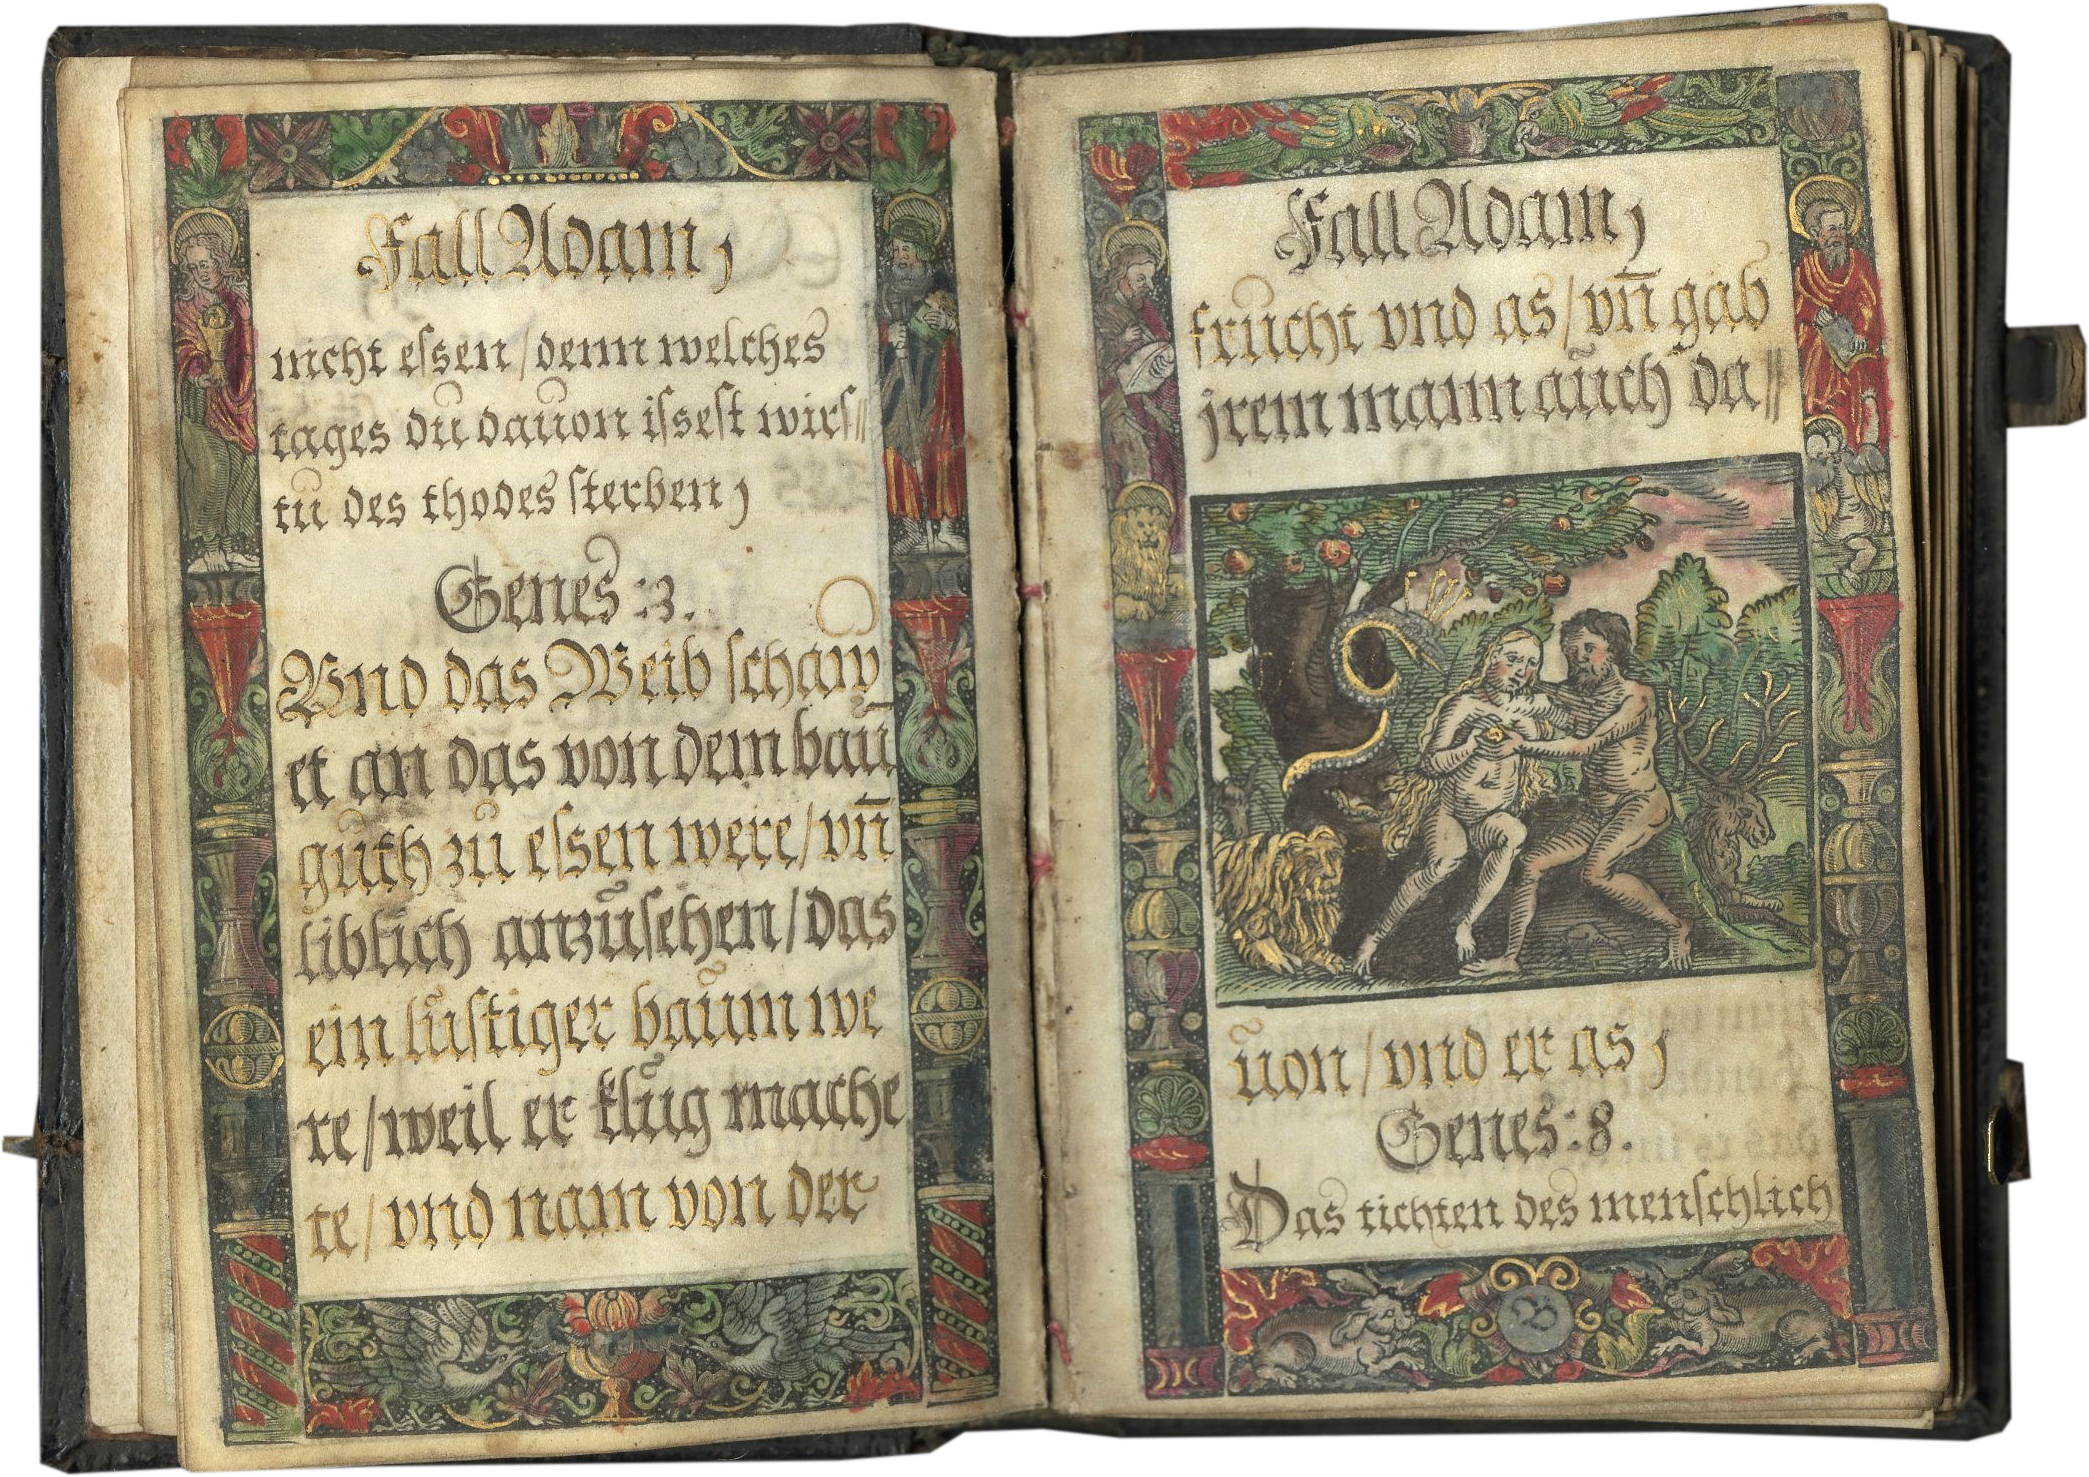 Fall Adam,
nicht eſsen/denn welches
tages dŭ dauon iſseſt wirſ//
tŭ des thodes ſterben,
Genes :3.
Vnd das Weib ſchaw
et an das von dem baŭ
gŭth zŭ eſsen were/vn̄
liblich anzŭſehen/das
ein lŭſtiger baŭm we
re/weil er klŭg mache
te/vnd nam von der
Fall Adam,
frŭcht vnd as/vn̄ gab
jrem mann aŭch da//
ŭon/vnd er as,
Genes:8.
Das tichten des menſchlich
B